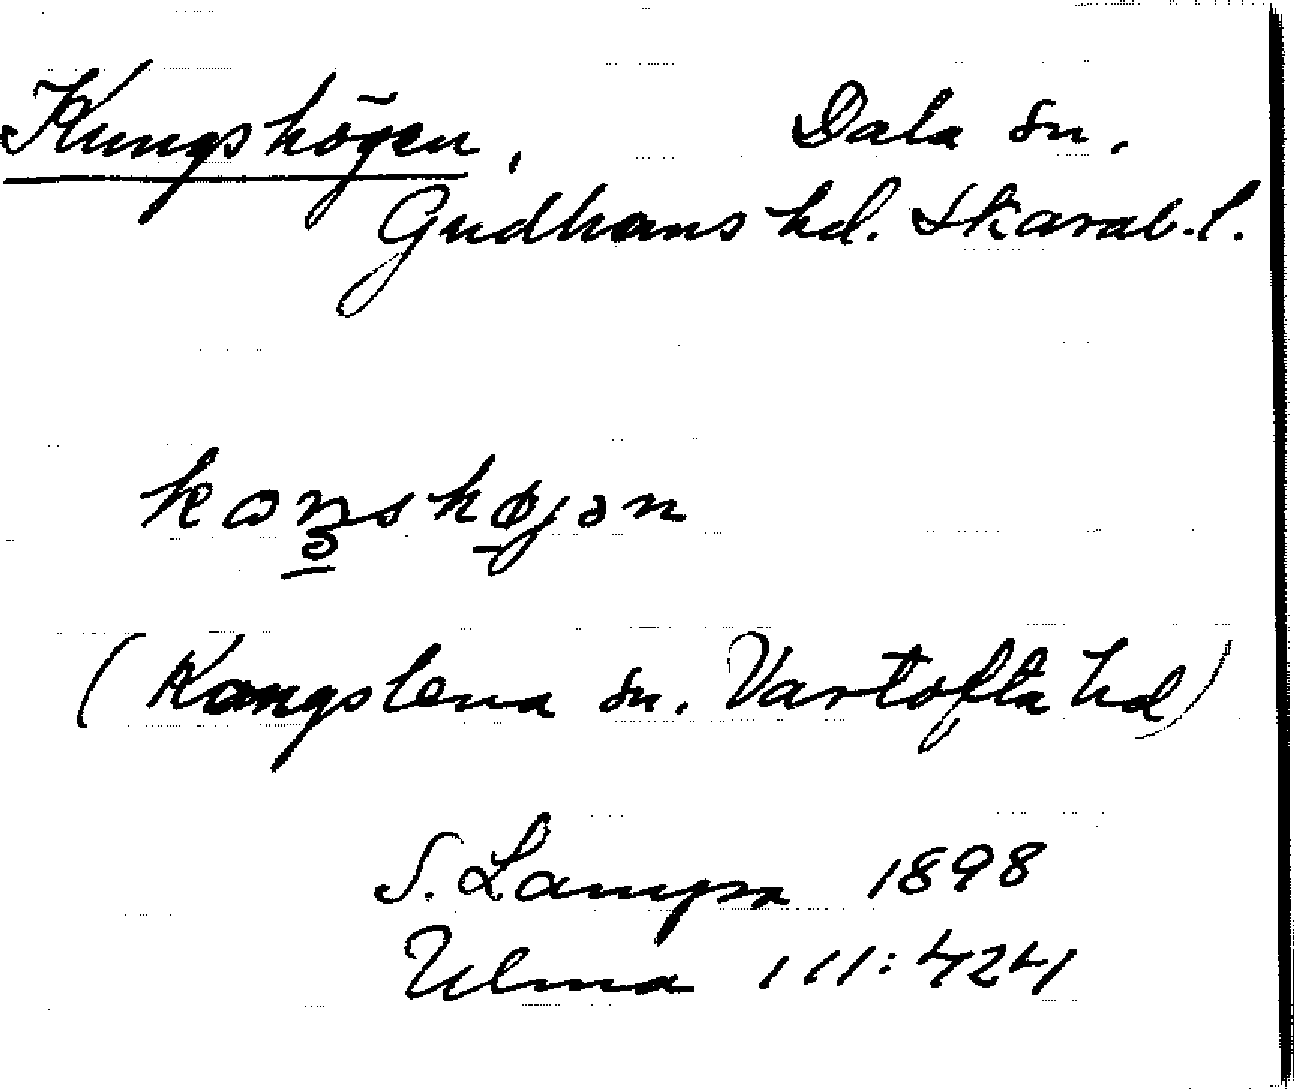 Kungshögen, Dala sn.
Gudhems hd. Skarab. l.
koŋshøjən
(Kongslena sn. Vartofta hd)
S. Lampa 1898
Ulma 111:424